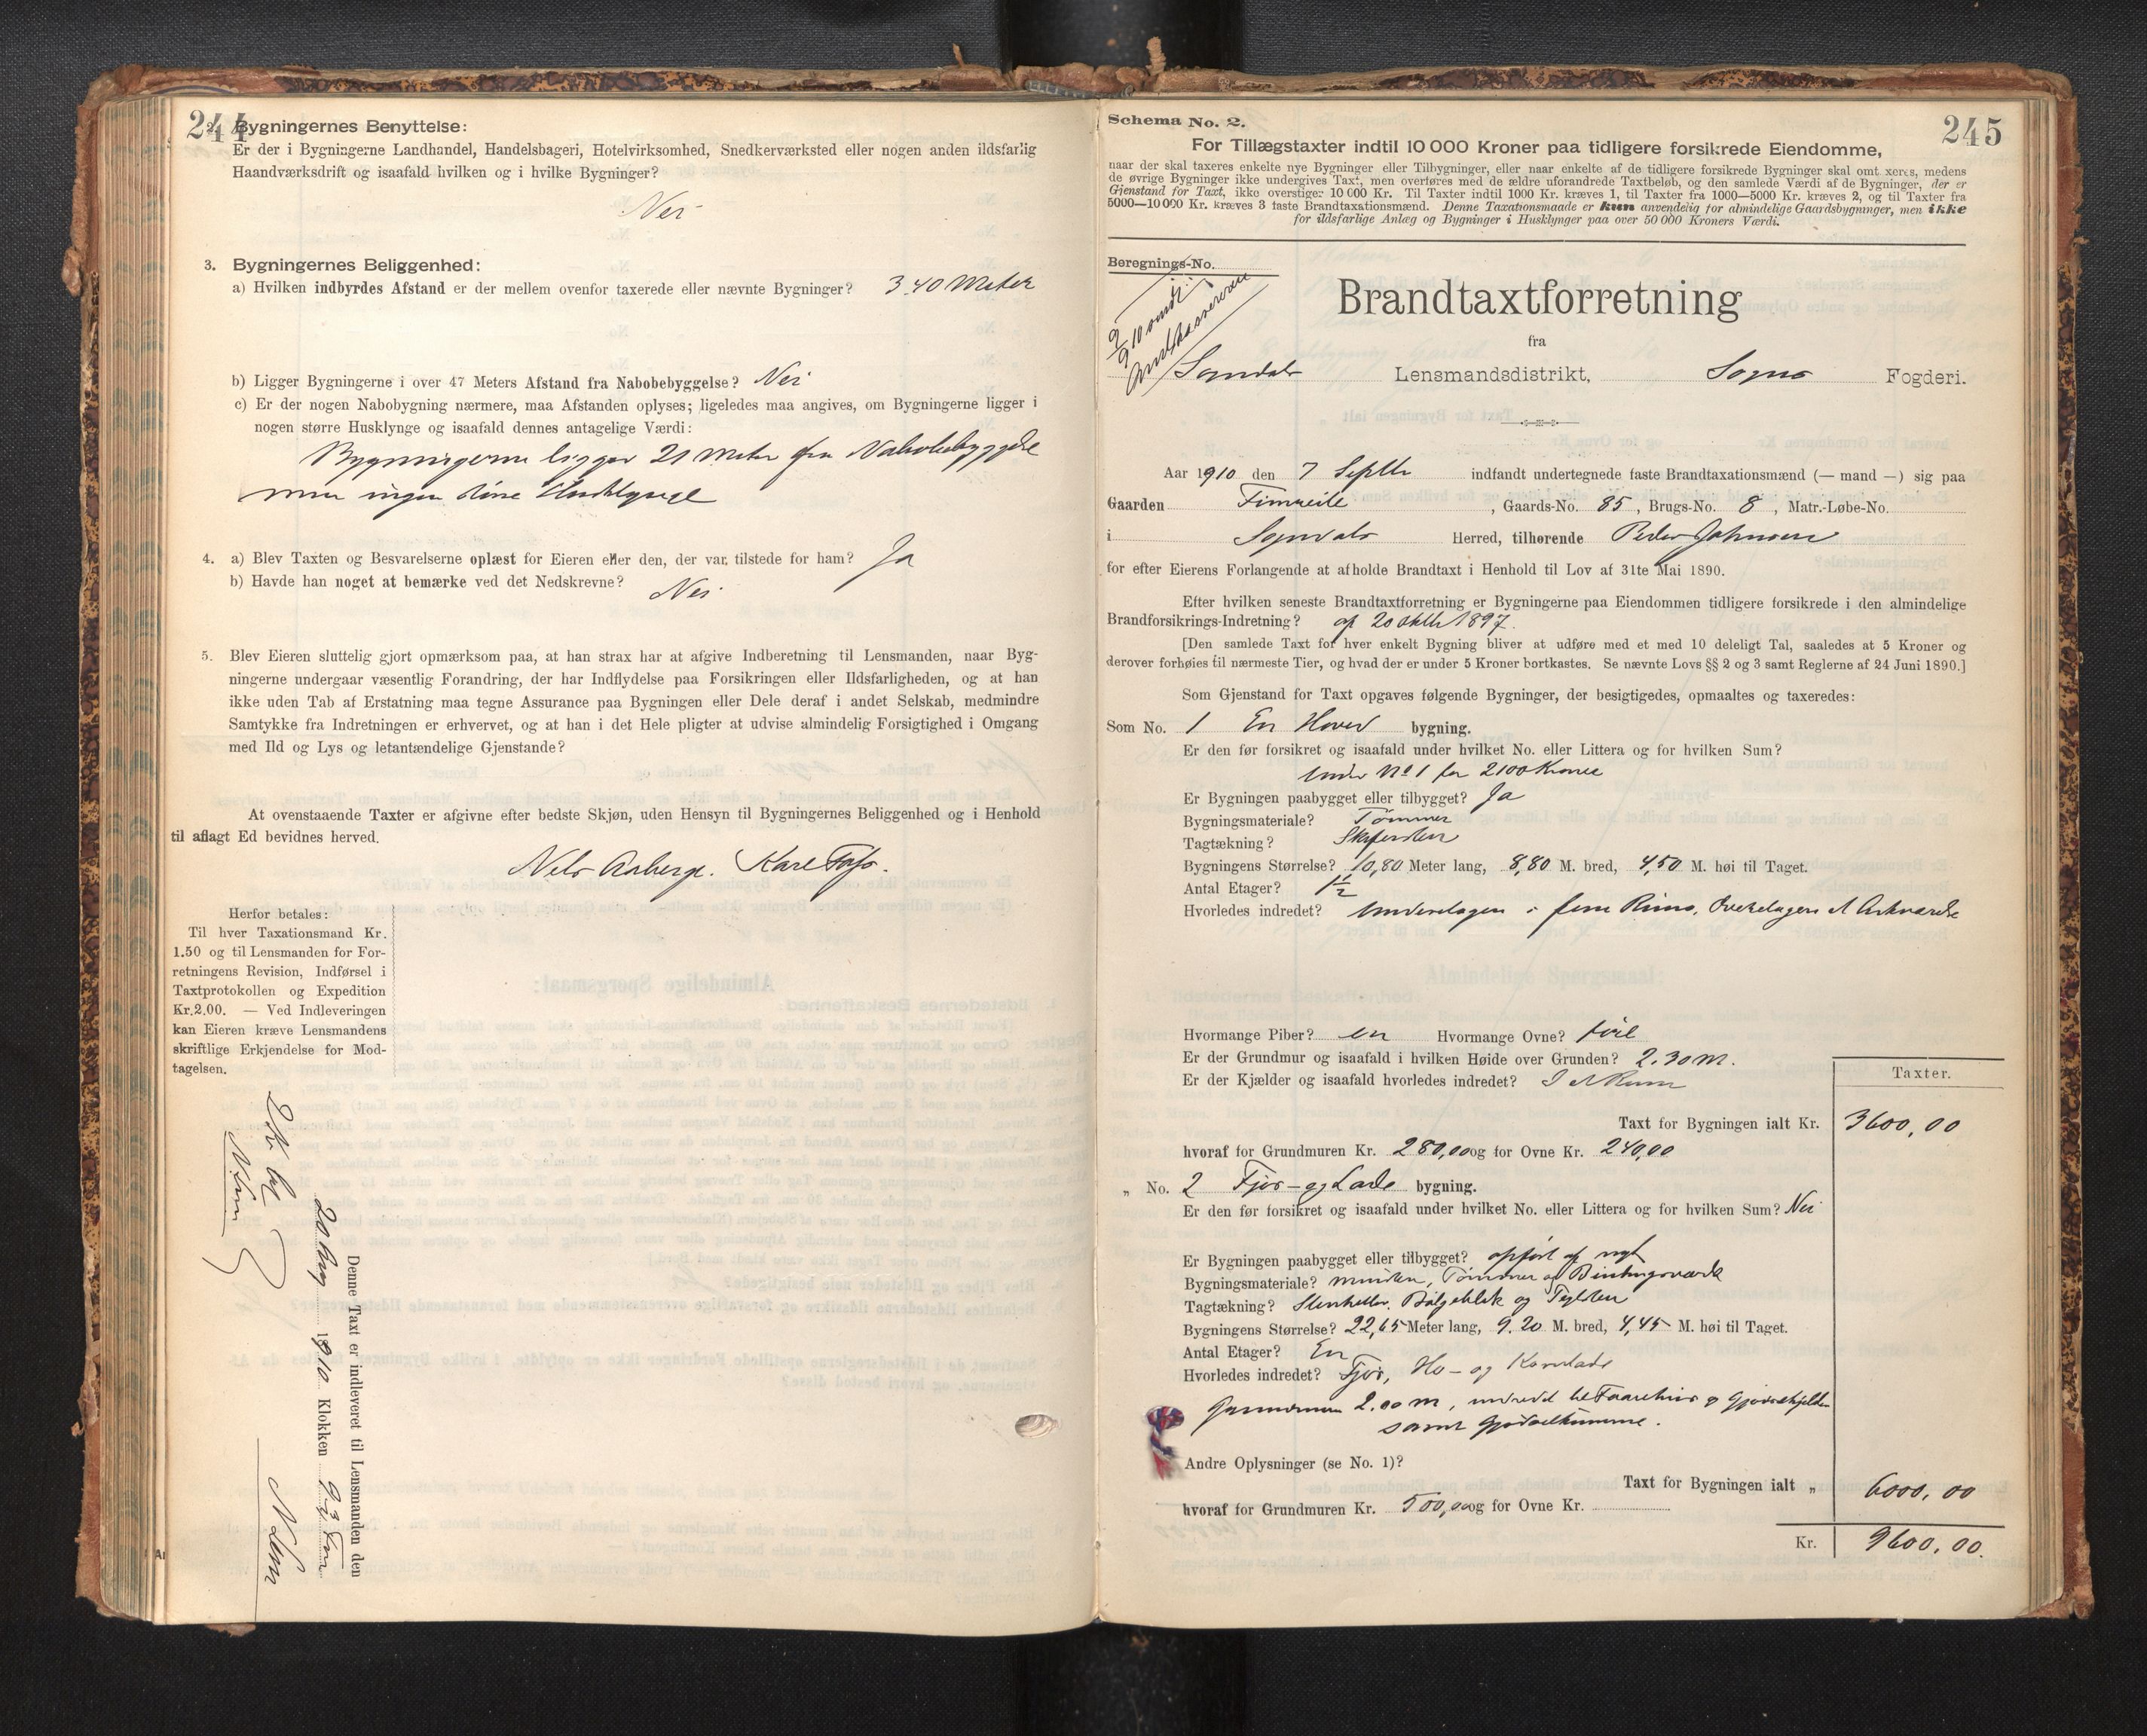 244
2. Bygningernes Benyttelse:
Er der i Bygningerne Landhandel, Handelsbageri, Hotelvirksomhed, Snedkerværksted eller nogen anden ildsfarlig
Haandværksdrift og isaafald hvilken og i hvilke Bygninger?
Nei
3. Bygningernes Beliggenhed:
a) Hvilken indbyrdes Afstand er der mellem ovenfor taxerede eller nævnte Bygninger? 3.40 Meter
b) Ligger Bygningerne i over 47 Meters Afstand fra Nabobebyggelse? Nei
c) Er der nogen Nabobygning nærmere, maa Afstanden oplyses; ligeledes maa angives, om Bygningerne ligger i
nogen større Husklynge og isaafald dennes antagelige Værdi:
Bygningerne ligger 21 Meter fra Nabobebyggelse
men ingen større Husklynge
4. a) Blev Taxten og Besvarelserne oplæst for Eieren eller den, der var tilstede for ham? Ja
b) Havde han noget at bemærke ved det Nedskrevne? Nei
5. Blev Eieren sluttelig gjort opmærksom paa, at han strax har at afgive Indberetning til Lensmanden, naar Byg-
ningerne undergaar væsentlig Forandring, der har Indflydelse paa Forsikringen eller Ildsfarligheden, og at han
ikke uden Tab af Erstatning maa tegne Assurance paa Bygningen eller Dele deraf i andet Selskab, medmindre
Samtykke fra Indretningen er erhvervet, og at han i det Hele pligter at udvise almindelig Forsigtighed i Omgang
med Ild og Lys og letantændelige Gjenstande?
At ovenstaaende Taxter er afgivne efter bedste Skjøn, uden Hensyn til Bygningernes Beliggenhed og i Henhold
til aflagt Ed bevidnes herved.
Nels Aaberge. Karl
Herfor betales:
Til hver Taxationsmand Kr.
1.50 og til Lensmanden for For-
retningens Revision, Indførsel i
Taxtprotokollen og Expedition
Kr.2.00. — Ved Indleveringen
kan Eieren kræve Lensmandens
skriftlige Erkjendelse for Mod-
tagelsen.
Denne Taxt er indleveret til Lensmanden den
20 1910 Klokken 9
245
Schema No. 2.
For Tillægstaxter indtil 10 000 Kroner paa tidligere forsikrede Eiendomme,
naar der skal taxeres enkelte nye Bygninger eller Tilbygninger, eller naar enkelte af de tidligere forsikrede Bygninger skal omtaxeres, medens
de øvrige Bygninger ikke undergives Taxt, men overføres med de ældre uforandrede Taxtbeløb, og den samlede Værdi af de Bygninger, der er
Gjenstand for Taxt, ikke overstiger 10 000 Kr. Til Taxter indtil 1000 Kr. kræves 1, til Taxter fra 1000—5000 Kr. kræves 2, og til Taxter fra
5000—10 000 Kr. kræves 3 faste Brandtaxationsmænd. Denne Taxationsmaade er kun anvendelig for almindelige Gaardsbygninger, men ikke
for ildsfarlige Anlæg og Bygninger i Husklynger paa over 50 000 Kroners Værdi.
Beregnings-No.
Brandtaxtforretning
fra
Sogndals Lensmandsdistrikt, Sogns Fogderi.
Aar 1910 den 7 Septbr indfandt undertegnede faste Brandtaxationsmænd (— mand —) sig paa
Gaarden Fimreite, Gaards-No. 85, Brugs-No. 8, Matr.-Løbe-No.
i Sogndals Herred, tilhørende Peder Johnsen
for efter Eierens Forlangende at afholde Brandtaxt i Henhold til Lov af 31te Mai 1890.
Efter hvilken seneste Brandtaxtforretning er Bygningerne paa Eiendommen tidligere forsikrede i den almindelige
Brandforsikrings-Indretning? af 20 oktbr 1897.
[Den samlede Taxt for hver enkelt Bygning bliver at udføre med et med 10 deleligt Tal, saaledes at 5 Kroner og
derover forhøies til nærmeste Tier, og hvad der er under 5 Kroner bortkastes. Se nævnte Lovs §§ 2 og 3 samt Reglerne af 24 Juni 1890.]
Som Gjenstand for Taxt opgaves følgende Bygninger, der besigtigedes, opmaaltes og taxeredes:
Som No. 1 En Hoved bygning.
Er den før forsikret og isaafald under hvilket No. eller Littera og for hvilken Sum?
under No 1 for 2100 Kroner
Er Bygningen paabygget eller tilbygget? Ja
Bygningsmateriale? Tømmer
Tagtækning? Skifersten
Bygningens Størrelse? 10,80 Meter lang, 8,80 M. bred, 4,50 M. høi til Taget.
Antal Etager? 1½
Hvorledes indredet? Underetagen i fem Rum, Overetagen et Arkværelse
Hvormange Piber? en Hvormange Ovne? fire
Er der Grundmur og isaafald i hvilken Høide over Grunden? 2.30 m.
Er der Kjælder og isaafald hvorledes indredet? I et Rum
Taxter.
Taxt for Bygningen ialt Kr. 3600,00
hvoraf for Grundmuren Kr. 280,00 og for Ovne Kr. 240,00
„ No. 2 Fjøs- og Lade bygning.
Er den før forsikret og isaafald under hvilket No. eller Littera og for hvilken Sum? Nei
Er Bygningen paabygget eller tilbygget? opført af nyt
Bygningsmateriale? mursten, Tømmer og Bindingsværk
Tagtækning? Stenheller, Bølgeblik og Teglsten
Bygningens Størrelse? 22,65 Meter lang, 9.20 M. bred, 4,45 M. høi til Taget.
Antal Etager? En
Hvorledes indredet? Fjøs, Hø- og Kornlade
Grundmuren 2.00 m, indredet til Faarehus og Gjødselkjelder
samt Gjødselkumme.
Andre Oplysninger (se No. 1)?
Taxt for Bygningen ialt „ 6000,00
hvoraf for Grundmuren Kr. 500,00 og for Ovne Kr.
Kr. 9600,00.